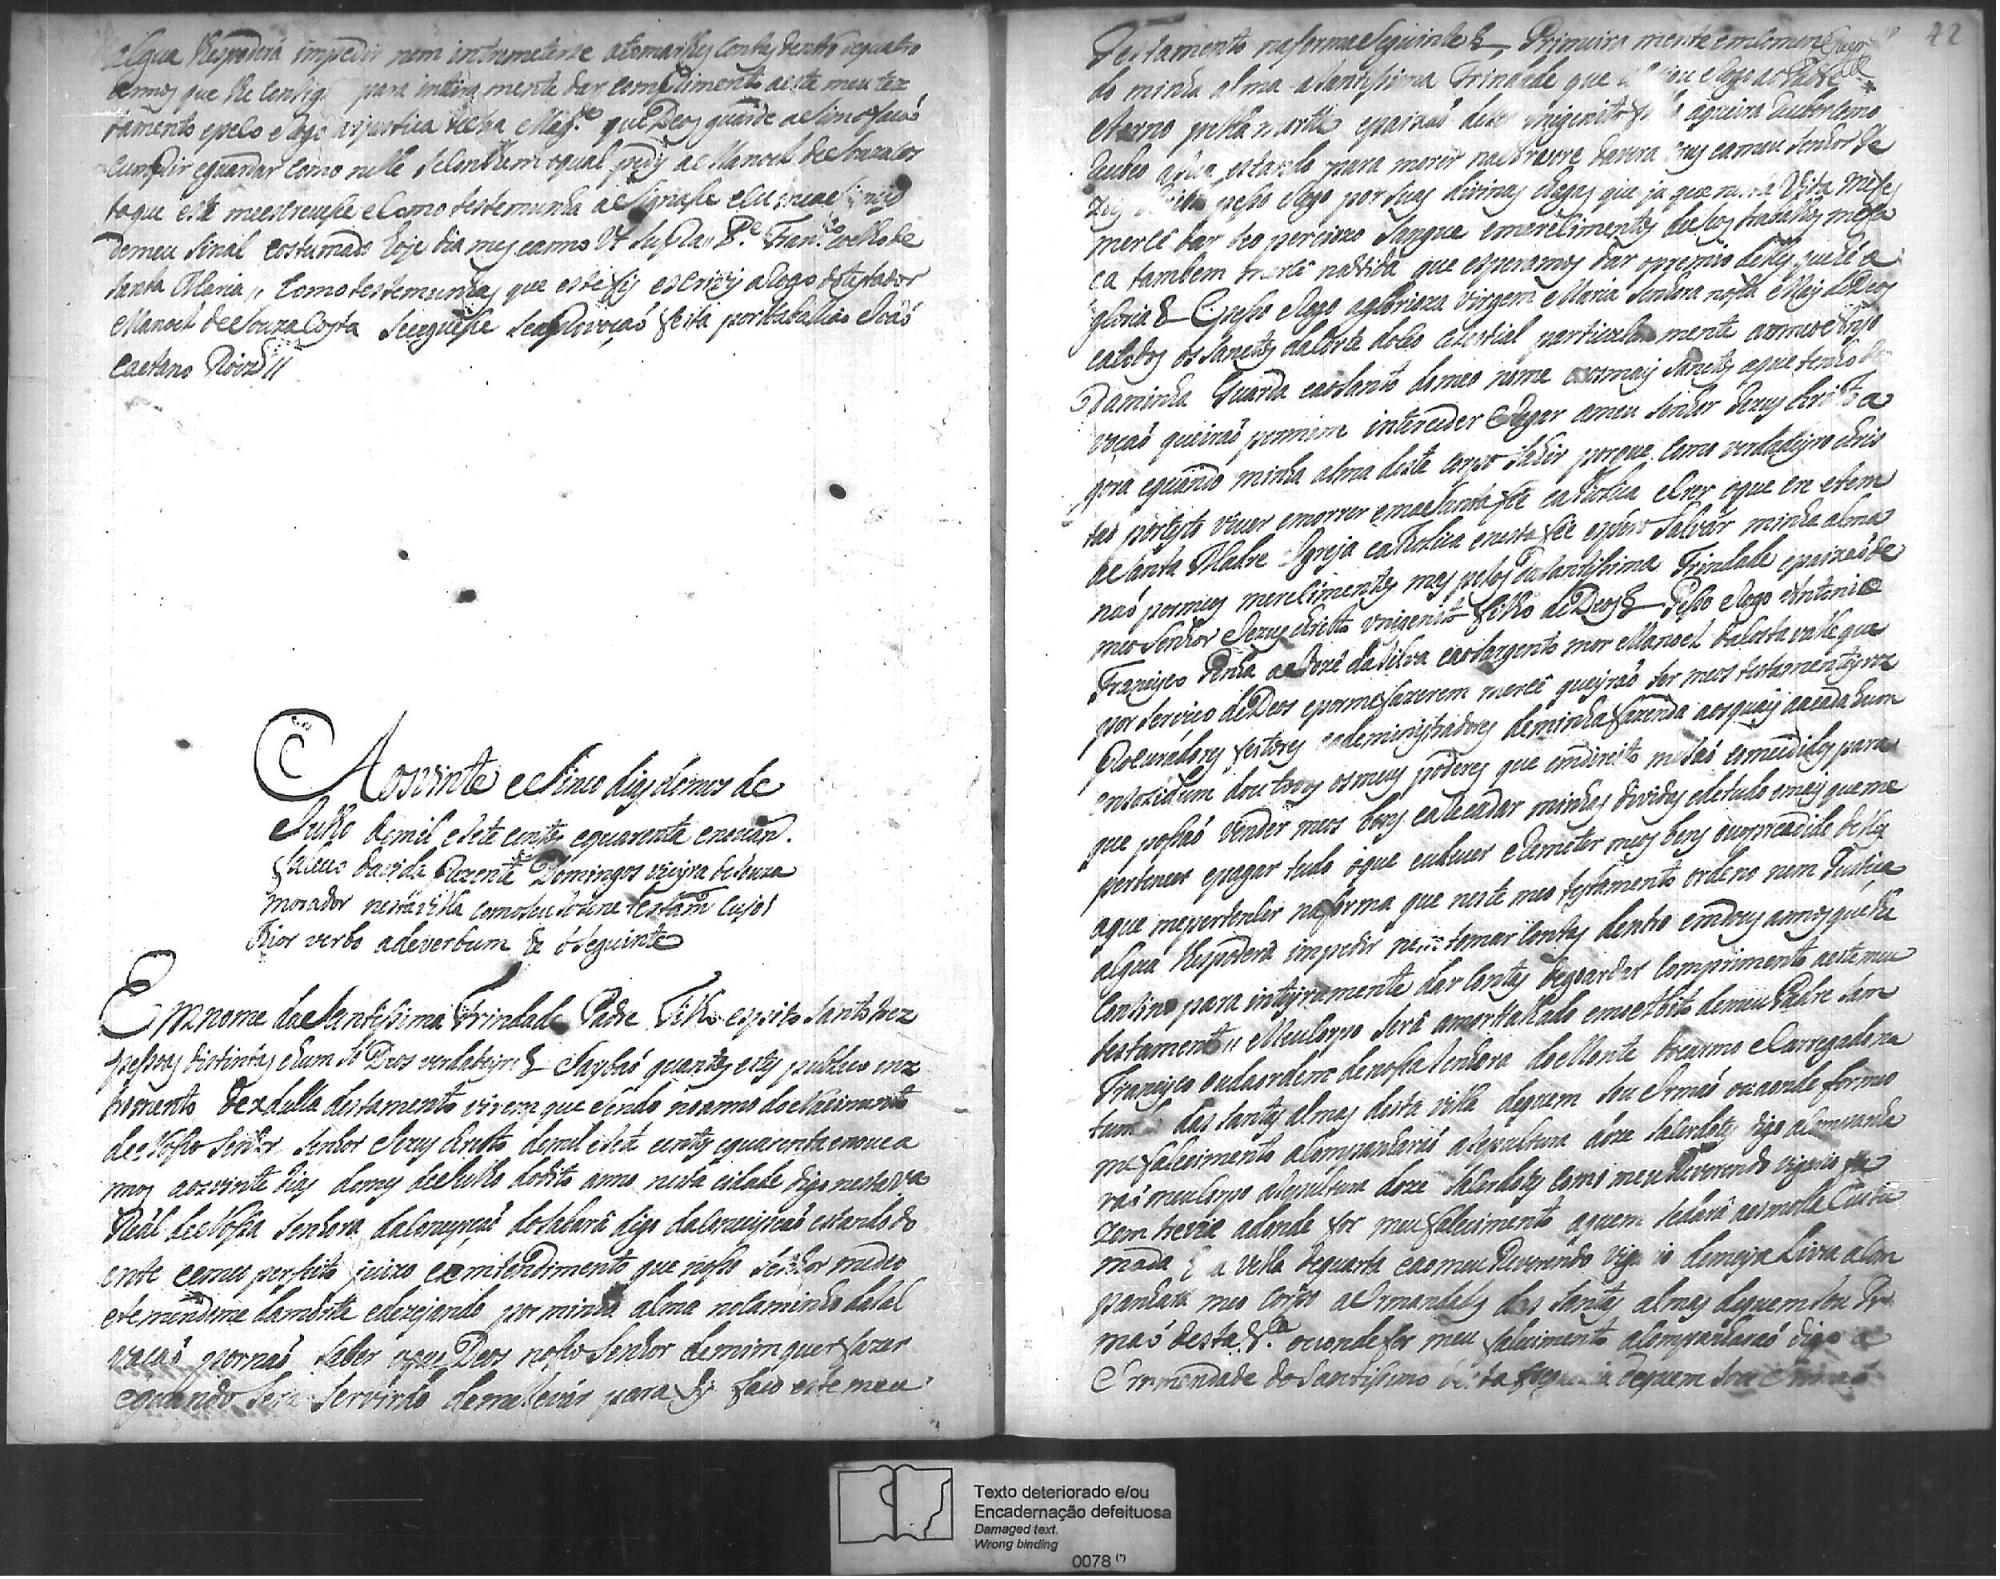 algua lhespoderá impedir nem intrometerse atomarlhes contas dentro dequatro
annos que lhe Consigno para inteira mente dar comprimento aeste meu tes
tamento epeço eRogo asjustiças desua Magde. que Deos guarde aSimofaçaõ
Cumprir eguardar como nelle seContem oqual pedy aeManoel deSouzaCos
taque este meescrevese eComo testemunha aSignase eEu meaSiney
demeu Sinal costumado Oje dia mes eanno Vt Supra,, Pe. Franco. Coelho de
Santa Maria,, Comotestemunhas que estefis escrevy aRogo dotestador
Manoel deSouza Costa Seseguese Seaprovaçaõ feita portabaliaõ Joaõ
Caetano Roiz //
Aosvinte eSinco dias domes de
Julho demil eSete centos equarenta enove an.
faleceo davida prezente Domingos vieyra deSouza
morador nestaVilla comoseu Solene testamto. cujo
thior verbo adeverbum he oseguinte
Emnome daSantissima Trindade Padre Filho espirito Santo trez
pessoas distintas ehum So Deos verdadeyro & Saybaõ quantos este publico inz
tromento deCedulla detestamento virem que Sendo noanno doNascimento
deNosso Senhor Senhor Jezus christo demil eSete centos equarenta enove a
nnos aosvinte dias domes deJulho dodito anno nesta cidade digo nesta Va
Real deNossa Senhora daConceyçaõ doSabará digo daConceiçaõ estando do
ente eemeu perfeito juizo eemtendimento que nosso Senhor medeo
etemendome damorte edezejando porminha alma nocaminho daSal
vaçaõ pornaõ Saber oque Deos nosso Senhor demim quer fazer
equando Será Servindo demeLevar para Sy faço este meu
42
Testamento nafórma eSeguinte & Primeira mente emComendo
do minha alma aSantissima Trindade que a Criou eRogo ao Padre
eterno pella morte epaixaõ deseu Unigenito aqueira receber como
recebeo aSua estando para morer naArvore davera crus eameu Senhor Je
zus Christo pesso eRogo por Suas divinas chagas que ja que nesta Vida mefes
merce dar Seo percioso Sangue emerecimentos deseos trabalhos mefa
ça tambem merce navida que esperamos dar opremio delles que hé a
gloria & Epesso eRogo agloriosa virgem Maria Senhora nossa May deDeos
eatodos os Sanctos daCorte doCeo celestial particular mente aomeo Anjo
Daminha Guarda eaoSanto domeo nome eaosmais Sanctos aque tenho de
voçaõ queiraõ pormim interceder eRogar ameu Senhor Jezus christo a
gora equando minha alma deste corpo Sahir porque Como verdadeyro chris
taõ protesto viver emorrer emaSanta fée catholica eCrer oque cre etem
aSanta Madre Igreja catholica enesta fée espero Salvar minha alma
naõ pormeos merecimentos mas pelos daSantissima Trindade epaixaõ de
meo Senhor Jezus christo vnigenito Filho deDeos & Pesso eRogo aAntonio
Francisco Penha aeJozé daSilva eaoSargento mor Manoel daCosta valle que
por Serviço deDeos epormefazerem mercê queyraõ Ser meos testamenteyros
Procuradores feitores eadeministradores deminha fazenda aosquais aacada hum
insolidum dou todos osmeus poderes que emdireito meSaõ comcedidos para
que possaõ vender meos bens eaRecadar minhas dividas edetudo omais queme
pertencer epagar tudo oque eudever eRemeter meos bens ouoprocedido delles
aque mepertencer naforma que neste meo testamento ordeno nem Justiça
algua lhespoderá impedir nem tomar Contas dentro emdous annos quelhe
Consino para inteyramente dar Contas deguardar Comprimento aeste meu
testamento,, MeuCorpo Será amortalhado emoAbito demeu Padre Sam
Francisco oudaordem denossa Senhora doMonte doCarmo eCarregado na
tumba das Santas almas desta villa dequem Sou Irmaõ ouaonde for meo
mefalecimento aComponharaõ aSepultura doze Sacerdotes digo aComponha
raõ meuCorpo aSepultura doze Sacerdotes Como meu Reverendo vigario fa
zem treze adonde for meu falecimento aquem Sedará aesmolla Custu
mada e a vella dequarta eaomeu Reverendo vigario demeya Livra aCom
panhará meo Corpo aIrmandade das Santas almas dequemSou Ir
maõ destaVa. ouondefor meu falecimento aComponharaõ digo a
Irmandade do Santissimo desta freguezia dequem Sou Irmaõ
Texto deteriorado e/ou
Encadernação defeituosa
Damaged text.
Wrong binding
0078 (*)